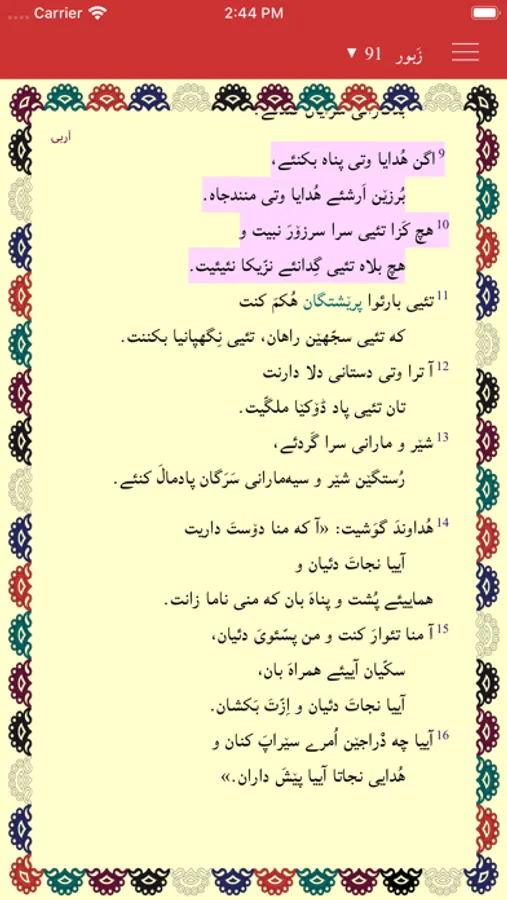 Carrier 2:44 PM
زَبور 91 ▼
اَربی
9 اگن هُدایا وتی پناه بکنئے،
بُرزێن اَرشئے هُدایا وتی منندجاه.
10 هچ کَزا تئیی سرا سرزۆرَ نبیت و
هچ بلاه تئیی گِدانئے نزّیکا نئیئیت.
11 تئیی بارئوا پرێشتگان هُکمَ کنت
که تئیی سجّهێن راهان، تئیی نِگهپانیا بکننت.
12 آ ترا وتی دستانی دلا دارنت
تان تئیی پاد ڈۆکێا ملگّیت.
13 شێر و مارانی سرا گَردئے،
رُستگێن شێر و سیه‌مارانی سَرَگان پادمالَ کنئے.
14 هُداوندَ گوَشیت: «آ که منا دۆستَ داریت
آییا نجاتَ دئیان و
هماییئے پُشت و پناهَ بان که منی ناما زانت.
15 آ منا تئوارَ کنت و من پسّئوَی دئیان،
سکّیان آییئے همراهَ بان،
آییا نجاتَ دئیان و اِزّتَ بَکشان.
16 آییا چه دْراجێن اُمرے سێراپَ کنان و
هُدایی نجاتا آییا پێشَ داران.»